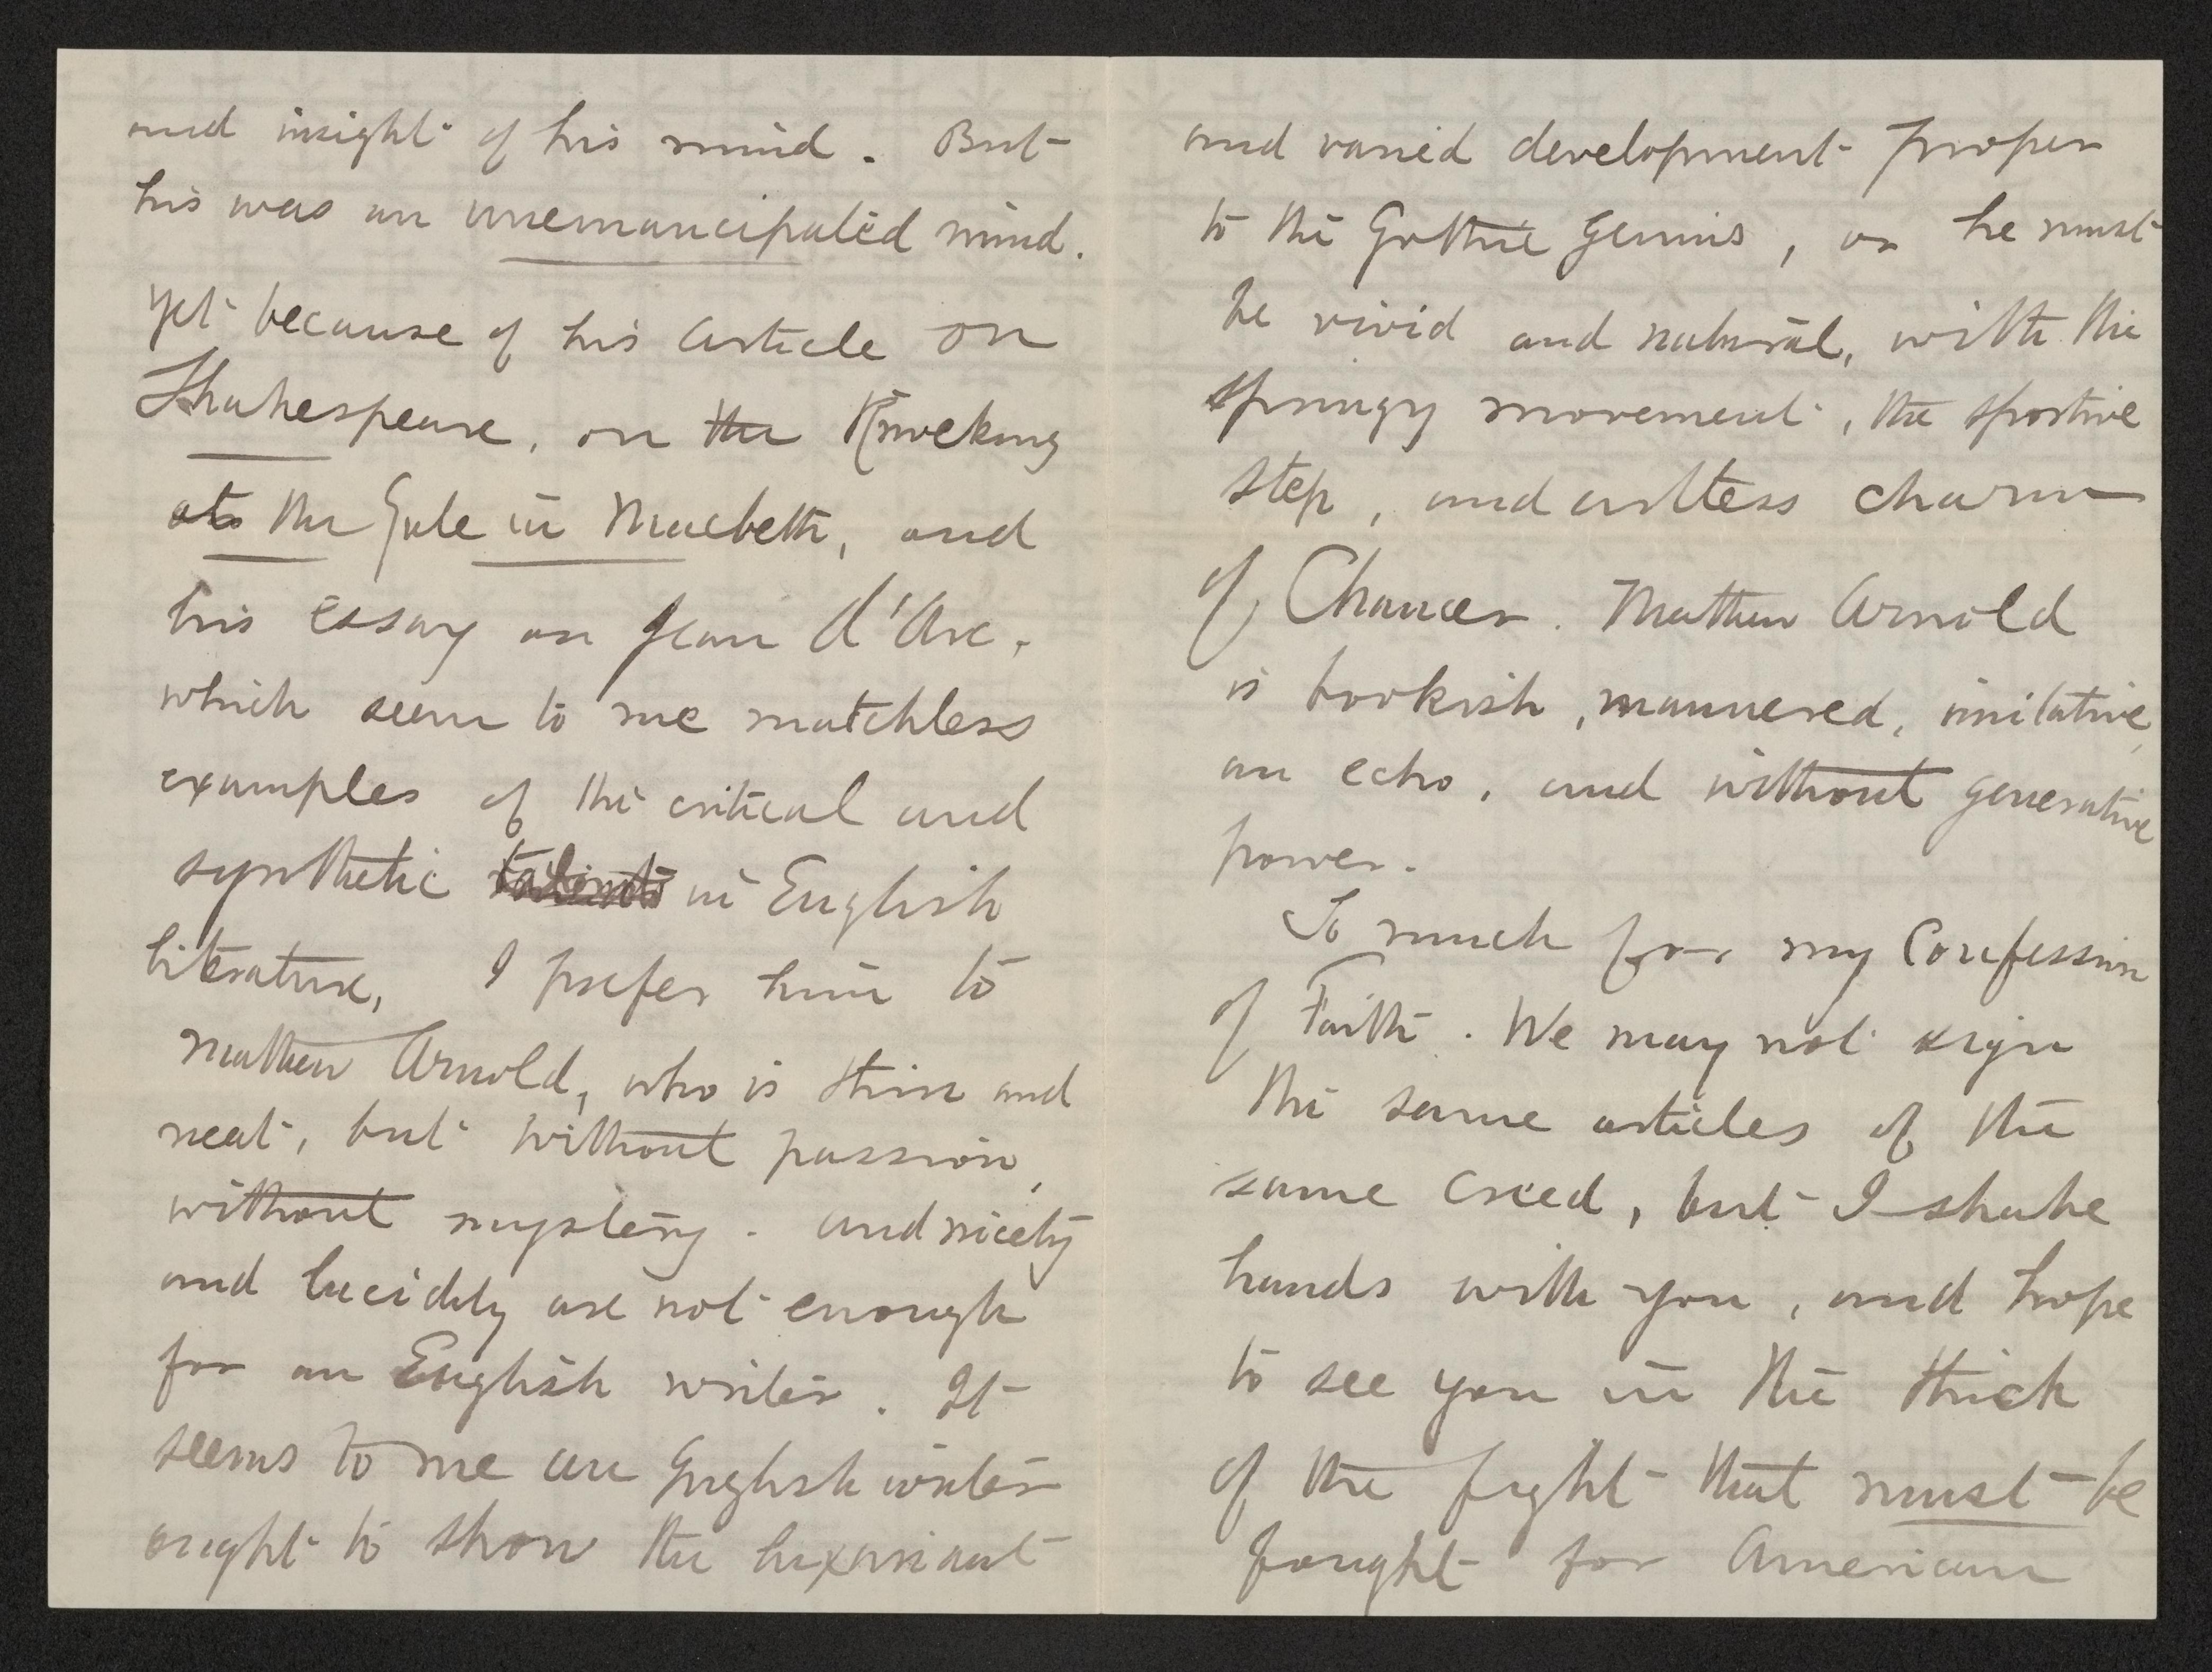 and insight of his mind. But
his was an unemancipated mind.
yet because of his article on
Shakespeare, on the Knocking
at the Gate in Macbeth, and
his essay on Jean d'Arc,
which seem to me matchless
examples of the critical and
synthetic in English
literature, I prefer him to
Mathew Arnold, who is thin and
neat, but without passion,
without mystery. and nicety
and lucidity are not enough
for an English writer. It
seems to me an English writer
ought to show the luxuriant
and varied development proper
to the Gothic genius, or he must
be vivid and natural, with the
springy movement, the sportive
step, and artless charm
of Chaucer. Mathew Arnold
is bookish, mannered, imitative,
an echo, and without generative
power.
So much for my Confession
of Faith. We may not sign
the same articles of the
same creed, but I shake
hands with you, and hope
to see you in the thick
of the fight that must be
fought for American